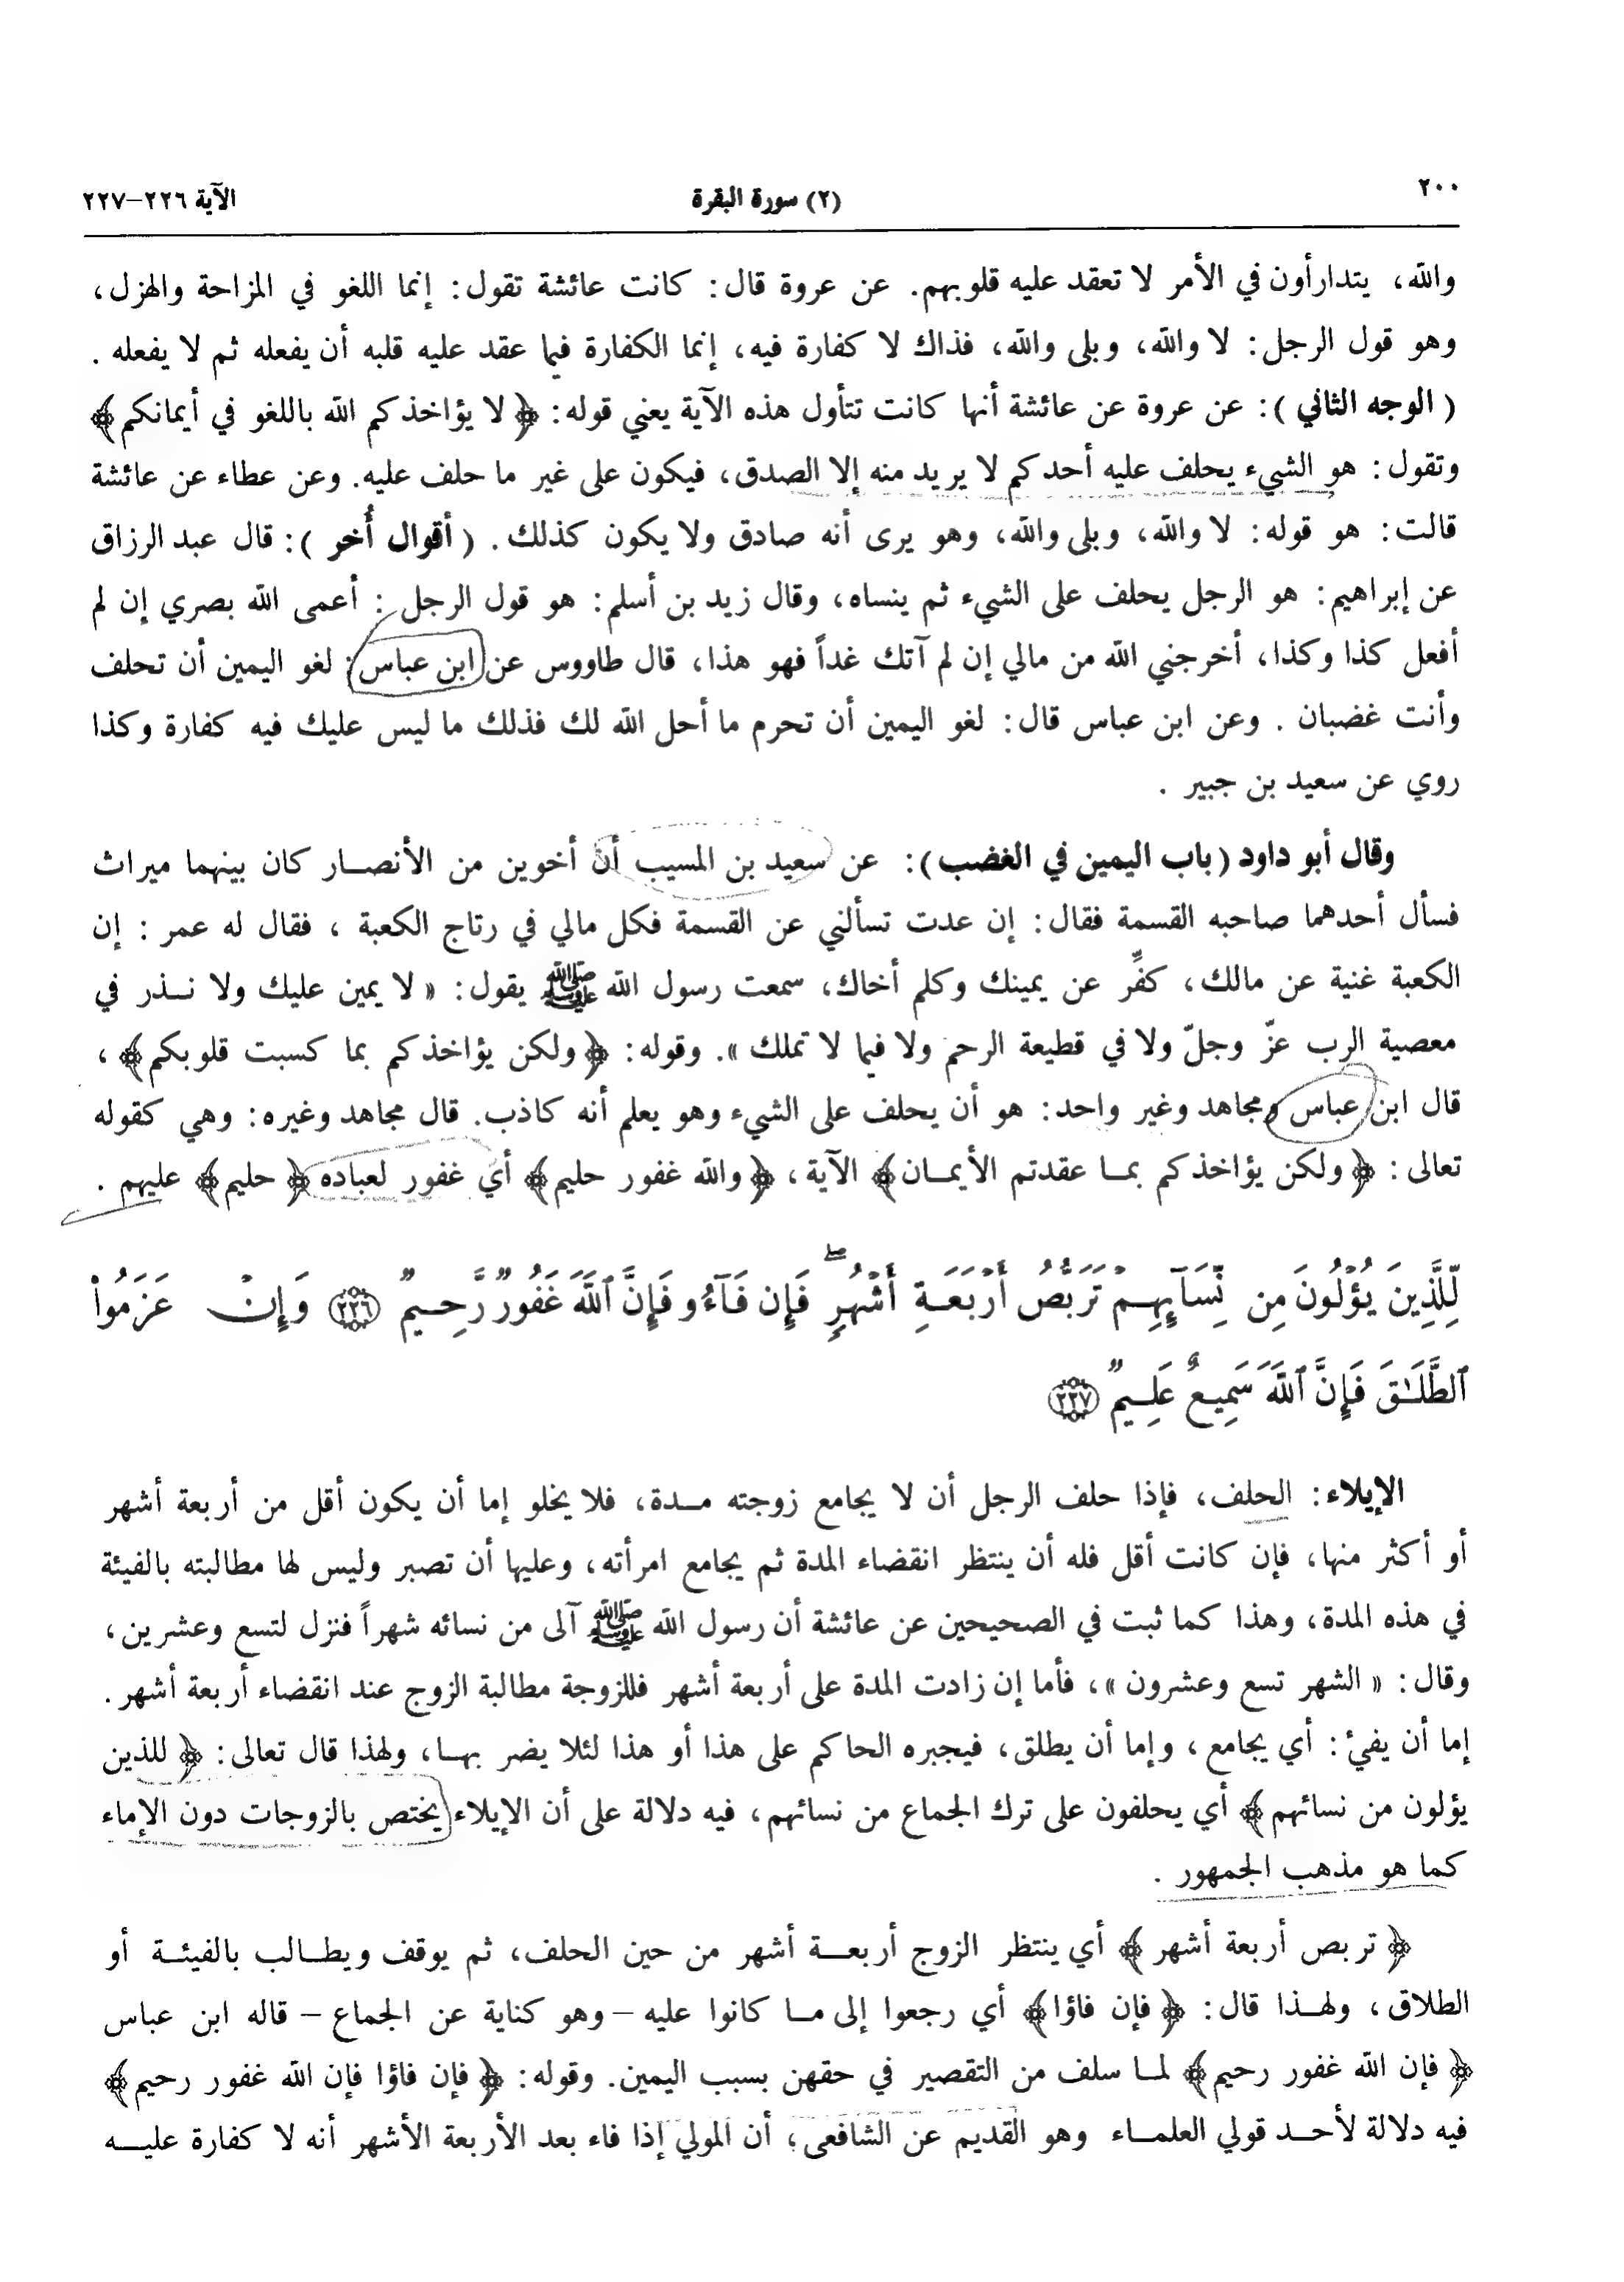 ٢٠٠
(٢) سورة البقرة
الآية ٢٢٦-٢٢٧
والله، يتدارأون في الأمر لا تعقد عليه قلوبهم. عن عروة قال: كانت عائشة تقول: إنما اللغو في المزاحة والهزل،
وهو قول الرجل: لا والله، وبلى والله، فذاك لا كفارة فيه، إنما الكفارة فيما عقد عليه قلبه أن يفعله ثم لا يفعله .
( الوجه الثاني ): عن عروة عن عائشة أنها كانت تتأول هذه الآية يعني قوله: ﴿ لا يؤاخذكم الله باللغو في أيمانكم ﴾
وتقول: هو الشيء يحلف عليه أحدكم لا يريد منه إلا الصدق، فيكون على غير ما حلف عليه. وعن عطاء عن عائشة
قالت: هو قوله: لا والله، وبلى والله، وهو يرى أنه صادق ولا يكون كذلك. ( أقوال أُخر ): قال عبد الرزاق
عن إبراهيم: هو الرجل يحلف على الشيء ثم ينساه، وقال زيد بن أسلم: هو قول الرجل : أعمى الله بصري إن لم
أفعل كذا وكذا، أخرجني الله من مالي إن لم آتك غداً فهو هذا، قال طاووس عن ابن عباس: لغو اليمين أن تحلف
وأنت غضبان . وعن ابن عباس قال: لغو اليمين أن تحرم ما أحل الله لك فذلك ما ليس عليك فيه كفارة وكذا
روي عن سعيد بن جبير .
وقال أبو داود (باب اليمين في الغضب): عن سعيد بن المسيب أن أخوين من الأنصار كان بينهما ميراث
فسأل أحدهما صاحبه القسمة فقال: إن عدت تسألني عن القسمة فكل مالي في رتاج الكعبة ، فقال له عمر : إن
الكعبة غنية عن مالك، كفِّر عن يمينك وكلم أخاك، سمعت رسول الله ﷺ يقول: « لا يمين عليك ولا نذر في
معصية الرب عزّ وجلّ ولا في قطيعة الرحم ولا فيما لا تملك ». وقوله: ﴿ ولكن يؤاخذكم بما كسبت قلوبكم ﴾ ،
قال ابن عباس ومجاهد وغير واحد: هو أن يحلف على الشيء وهو يعلم أنه كاذب. قال مجاهد وغيره: وهي كقوله
تعالى : ﴿ ولكن يؤاخذكم بما عقدتم الأيمان ﴾ الآية ، ﴿ والله غفور حليم ﴾ أي غفور لعباده ﴿ حليم ﴾ عليهم .
لِّلَّذِينَ يُؤْلُونَ مِن نِّسَآئِهِمْ تَرَبُّصُ أَرْبَعَةِ أَشْهُرٍۖ فَإِن فَآءُو فَإِنَّ ٱللَّهَ غَفُورٌ رَّحِيمٌ ﴿٢٢٦﴾ وَإِنْ عَزَمُوا۟
ٱلطَّلَٰقَ فَإِنَّ ٱللَّهَ سَمِيعٌ عَلِيمٌ ﴿٢٢٧﴾
الإيلاء: الحلف، فإذا حلف الرجل أن لا يجامع زوجته مدة، فلا يخلو إما أن يكون أقل من أربعة أشهر
أو أكثر منها، فإن كانت أقل فله أن ينتظر انقضاء المدة ثم يجامع امرأته، وعليها أن تصبر وليس لها مطالبته بالفيئة
في هذه المدة، وهذا كما ثبت في الصحيحين عن عائشة أن رسول الله ﷺ آلى من نسائه شهراً فنزل لتسع وعشرين،
وقال: « الشهر تسع وعشرون »، فأما إن زادت المدة على أربعة أشهر فللزوجة مطالبة الزوج عند انقضاء أربعة أشهر.
إما أن يفيْ: أي يجامع، وإما أن يطلق، فيجبره الحاكم على هذا أو هذا لئلا يضر بها، ولهذا قال تعالى: ﴿ للذين
يؤلون من نسائهم ﴾ أي يحلفون على ترك الجماع من نسائهم، فيه دلالة على أن الإيلاء يختص بالزوجات دون الإماء
كما هو مذهب الجمهور .
﴿ تربص أربعة أشهر ﴾ أي ينتظر الزوج أربعة أشهر من حين الحلف، ثم يوقف ويطالب بالفيئة أو
الطلاق، ولهذا قال: ﴿ فإن فاؤا ﴾ أي رجعوا إلى ما كانوا عليه – وهو كناية عن الجماع – قاله ابن عباس
﴿ فإن الله غفور رحيم ﴾ لما سلف من التقصير في حقهن بسبب اليمين. وقوله: ﴿ فإن فاؤا فإن الله غفور رحيم ﴾
فيه دلالة لأحد قولي العلماء وهو القديم عن الشافعي؛ أن المولي إذا فاء بعد الأربعة الأشهر أنه لا كفارة عليه